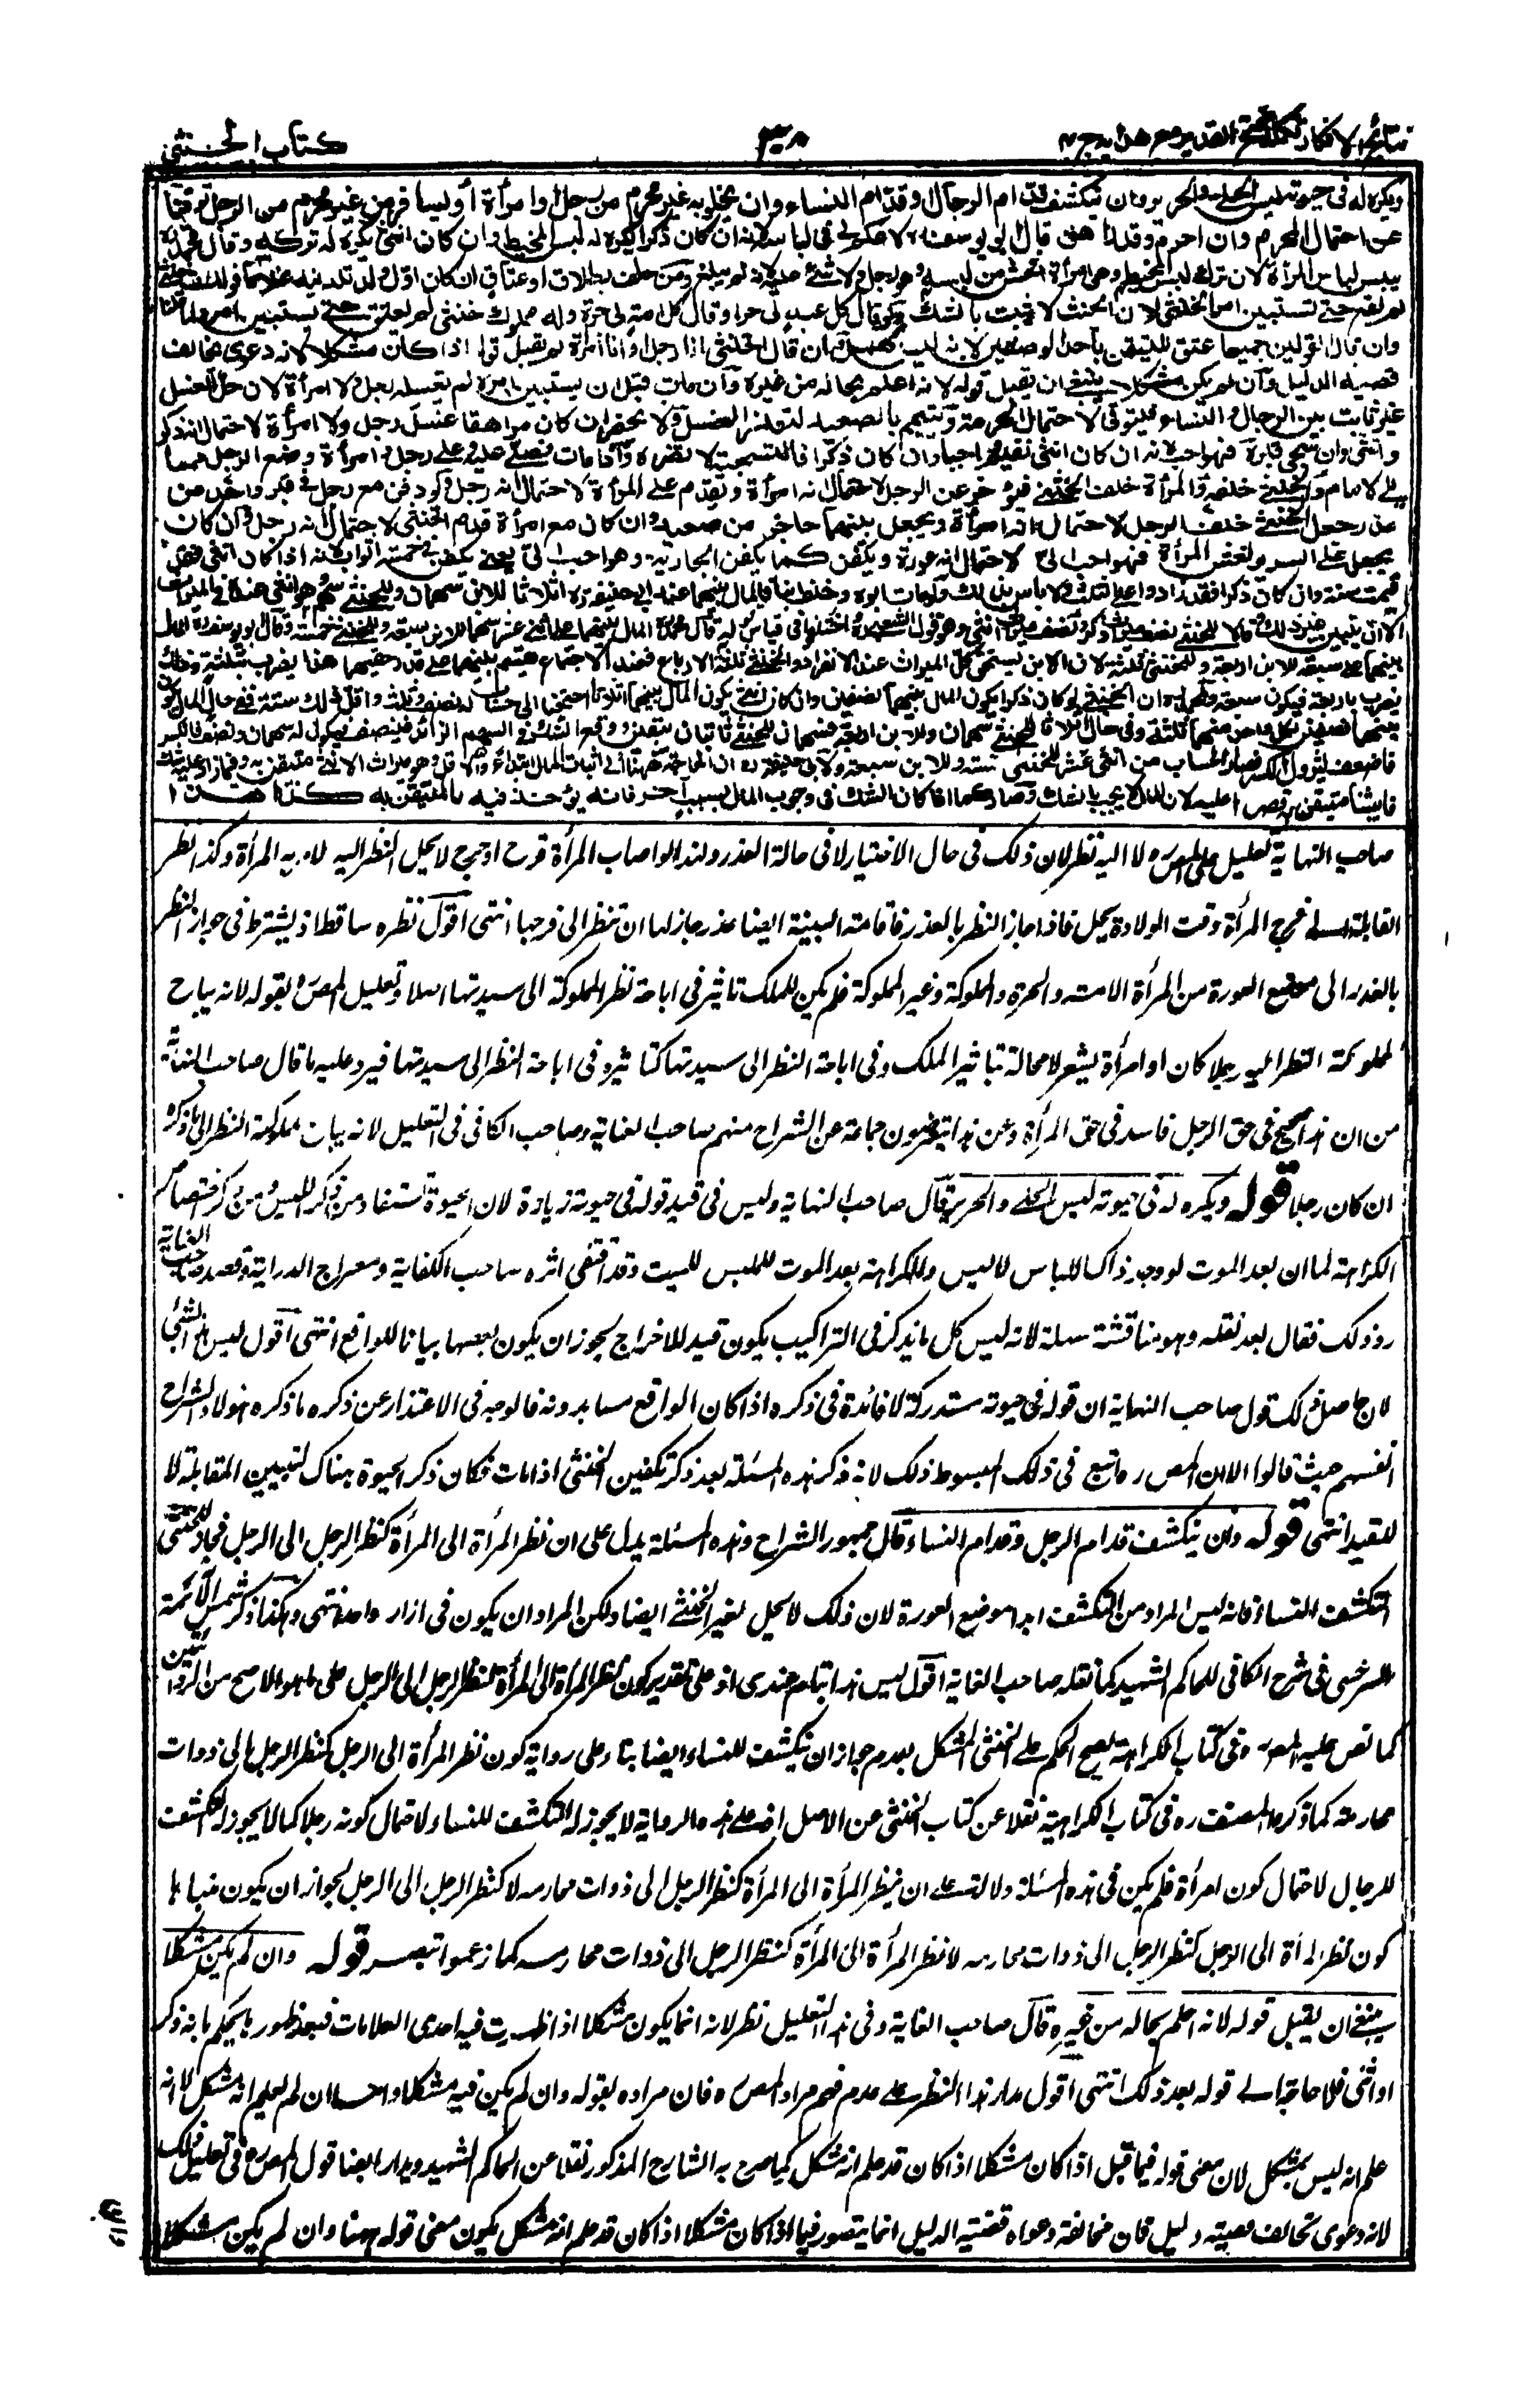 نتائج الافكار تكملة فتح القدير مع هداية ج ٤
كتاب الخنثى
ويكره له فى حيوته لبس الحلى والحرير وان يتكشف قدام الرجال وقدام النساء وان يخلو به غير محرم من رجل او امرأة أو يسافر من غير محرم من الرجل توقيا
عن احتمال المحرم وان احرم وقد راهق قال ابو يوسف لا علم لى فى لباسه لانه ان كان ذكرا يكره له لبس المخيط وان كان انثى يكره له تركه وقال محمد
يلبس لباس المرأة لان ترك لبس المخيط وهى امرأة افحش من لبسه وهو رجل ولا شئ عليه لانه لم يبلغ ومن حلف بطلاق او عتاق ان كان اول ولد تلدينه غلاما
لم يقع حتى تستبين امر الخنثى لان الحنث لا يثبت بالشك ولو قال كل عبد لى حر او قال كل امة لى حرة وله مملوك خنثى لم يعتق حتى يستبين امره
وان قال القولين جميعا عتق للتيقن باحد الوصفين لانه ليس بمهمل وان قال الخنثى انا رجل او انا امرأة لم يقبل قوله اذا كان مشكلا لانه دعوى يخالف
قضية الدليل وان لم يكن مشكلا ينبغى ان يقبل قوله لانه اعلم بحاله من غيره وان مات قبل ان يستبين امره لم يغسله رجل ولا امرأة لان حل الغسل
غير ثابت بين الرجال والنساء فيتوقى لاحتمال الحرمة وييمم بالصعيد لتعذر الغسل ولا يحضر ان كان مراهقا غسل رجل ولا امرأة لاحتمال انه ذكر
او انثى وان سجى قبره فهو احب لانه ان كان انثى نقيم واجبا وان كان ذكرا فالتسجية لا تضره واذا مات فصلى عليه وعلى رجل وامرأة وضع الرجل مما
يلى الامام والخنثى خلفه والمرأة خلف الخنثى فيؤخر عن الرجل لاحتمال انه امرأة ويقدم على المرأة لاحتمال انه رجل ولو دفن مع رجل فى قبر واحد من
عذر جعل الخنثى خلف الرجل لاحتمال انه امرأة ويجعل بينهما حاجز من صعيد وان كان مع امرأة قدم الخنثى لاحتمال انه رجل وان كان
يجعل على السرير نعش المرأة فهو احب الى لاحتمال انه عورة ويكفن كما يكفن الجارية وهو احب الى يعنى يكفن فى خمسة اثواب لانه اذا كان انثى فقد
اقيمت سنة وان كان ذكرا فقد زادوا على الثلث ولا بأس بذلك ولو مات ابوه وخلف ابنا فالمال بينهما عند ابى حنيفة ره اثلاثا للابن سهمان وللخنثى سهم وهو انثى عنده فى الميراث
الا ان يتبين غير ذلك وقالا للخنثى نصف ميراث ذكر ونصف ميراث انثى وهو قول الشعبى ره واختلفوا فى قياس قوله قال محمد ره المال بينهما على اثنى عشر سهما للابن سبعة وللخنثى خمسة وقال ابو يوسف ره المال
بينهما على سبعة للابن اربعة وللخنثى ثلثة لان الابن يستحق كل الميراث عند الانفراد والخنثى ثلثة الارباع فعند الاجتماع يقسم بينهما على قدر حقيهما هذا يضرب بثلثة وذلك
يضرب باربعة فيكون سبعة ولمحمد ره ان الخنثى لو كان ذكرا يكون المال بينهما نصفين وان كان انثى يكون المال بينهما اثلاثا احتجنا الى حساب له نصف وثلث واقل ذلك ستة ففى حال المال
بينهما نصفين لكل واحد منهما ثلثة وفى حال اثلاثا للخنثى سهمان وللابن اربعة فسهمان للخنثى ثابتان بيقين ووقع الشك فى السهم الزائد فيتنصف فيكون له سهمان ونصف فانكسر
فاضعف ليزول الكسر فصار الحساب من اثنى عشر للخنثى خمسة وللابن سبعة ولابى حنيفة ره ان الحاجة ههنا الى اثبات المال ابتداء والاقل وهو ميراث الانثى متيقن به وفيما زاد عليه شك
فاثبتنا المتيقن قصرا عليه لان المال لا يجب بالشك وصار كما اذا كان الشك فى وجوب المال بسبب آخر فانه يؤخذ فيه بالمتيقن به كذا هذا
صاحب النهاية تعليل المصره لا اليه نظر لان ذلك فى حال الاختيار لا فى حالة العذر ولهذا لو اصاب المرأة قرح او جرح لا يحل النظر اليه المرأة وكذا نظر
القابلة الى فرج المرأة وقت الولادة يحل فاذا جاز النظر بالعذر فاقامة السنة ايضا عذر جاز لها ان تنظر الى فرجها انتهى اقول نظره ساقط اذ يشترط فى جواز النظر
بالعذر الى موضع العورة من المرأة الامة والحرة والمملوكة وغير المملوكة فلم يكن للملك تاثير فى اباحة نظر المملوكة الى سيدتها اصلا وتعليل المصره بقوله لانه يباح
لمملوكته النظر اليه رجلا كان او امرأة يشعر لا محالة بتاثير الملك وفى اباحة النظر الى سيدتها كتاثيره فى اباحة النظر الى سيدها فيرد عليه ما قال صاحب الغاية
من ان هذا صحيح فى حق الرجل فاسد فى حق المرأة وعن هذا جماعة عن الشراح منهم صاحب العناية وصاحب الكافى فى التعليل لانه يباح لمملوكته النظر الى ذكره
ان كان رجلا قوله ويكره له فى حيوته لبس الحلى والحرير قال صاحب النهاية وليس فى قيد قوله فى حيوته زيادة لان الحيوة تستفاد من ذكر اللبس ومن ذكر اختصاص
الكراهة لما ان بعد الموت لو وجد ذاك الالباس لا اللبس والكراهة بعد الموت للملبس لا للميت وقد اقتفى اثره صاحب الكفاية ومعراج الدراية وقصد صاحب العناية
رد ذلك فقال بعد نقله وهو مناقشة سهلة لانه ليس كل ما يذكر فى التراكيب يكون قيدا للاخراج لجواز ان يكون بعضها بيانا للواقع انتهى اقول ليس هذا بشئ
لان حاصل ذلك قول صاحب النهاية ان قوله فى حيوته مستدرك لا فائدة فى ذكره اذا كان الواقع مستفادا بدونه فالوجه فى الاعتذار عن ذكره ما ذكره هؤلاء الشراح
انفسهم حيث قالوا الا ان المص ره تابع فى ذلك المبسوط ذلك لانه ذكر هذه المسئلة بعد ذكر تكفين الخنثى اذا مات فكان ذكر الحيوة هناك لتبيين المقابلة لا
للتقييد انتهى قوله وان يتكشف قدام الرجل وقدام النساء قال جمهور الشراح وهذه المسئلة يدل على ان نظر المرأة الى المرأة كنظر الرجل الى الرجل فجاز للخنثى
التكشف للنساء فانه ليس المراد من التكشف ابداء موضع العورة لان ذلك لا يحل لغير الخنثى ايضا ولكن المراد ان يكون فى ازار واحد انتهى وهكذا ذكر شمس الائمة
السرخسى فى شرح الكافى للحاكم الشهيد كما نقله صاحب الغاية اقول ليس هذا بتام عندى اذ على تقدير كون نظر المرأة الى المرأة كنظر الرجل الى الرجل على ما هو الاصح من الروايتين
كما نص عليه المصره فى كتاب الكراهية يصح الحكم على الخنثى المشكل بعدم جواز ان يتكشف للنساء ايضا بناء على رواية كون نظر المرأة الى الرجل كنظر الرجل الى ذوات
محارمه كما ذكره المصنف ره فى كتاب الكراهية نقلا عن كتاب الخنثى من الاصل اذ على هذه الرواية لا يجوز له التكشف للنساء لاحتمال كونه رجلا كما لا يجوز له التكشف
للرجال لاحتمال كونه امرأة فلم يكن فى هذه المسئلة دلالة على ان نظر المرأة الى المرأة كنظر الرجل الى ذوات محارمه لا كنظر الرجل الى الرجل لجواز ان يكون مبناها
كون نظر المرأة الى الرجل كنظر الرجل الى ذوات محارمه لا نظر المرأة الى المرأة كنظر الرجل الى ذوات محارمه كما زعموا تبصر قوله وان لم يكن مشكلا
ينبغى ان يقبل قوله لانه اعلم بحاله من غيره قال صاحب الغاية وفى هذا التعليل نظر لانه انما يكون مشكلا اذا ظهرت فيه احدى العلامات فبعد ظهورها يحكم بانه ذكر
او انثى فلا حاجة الى قوله بعد ذلك انتهى اقول مدار هذا النظر على عدم فهم مراد المصره فان مراده بقوله وان لم يكن فيه مشكلا وان لم يعلم انه مشكل لا انه
علم انه ليس بمشكل لان معنى قوله فيما قبل اذا كان مشكلا اذا كان قد علم انه مشكل كما صرح به الشارح المذكور نقلا عن الحاكم الشهيد ويدل ايضا قول المصره فى تعليل ذلك
لانه دعوى تخالف قضية دليل فان مخالفة دعواه قضية الدليل انما يتصور فيما اذا كان مشكلا اذا كان قد علم انه مشكل يكون معنى قوله ههنا وان لم يكن مشكلا